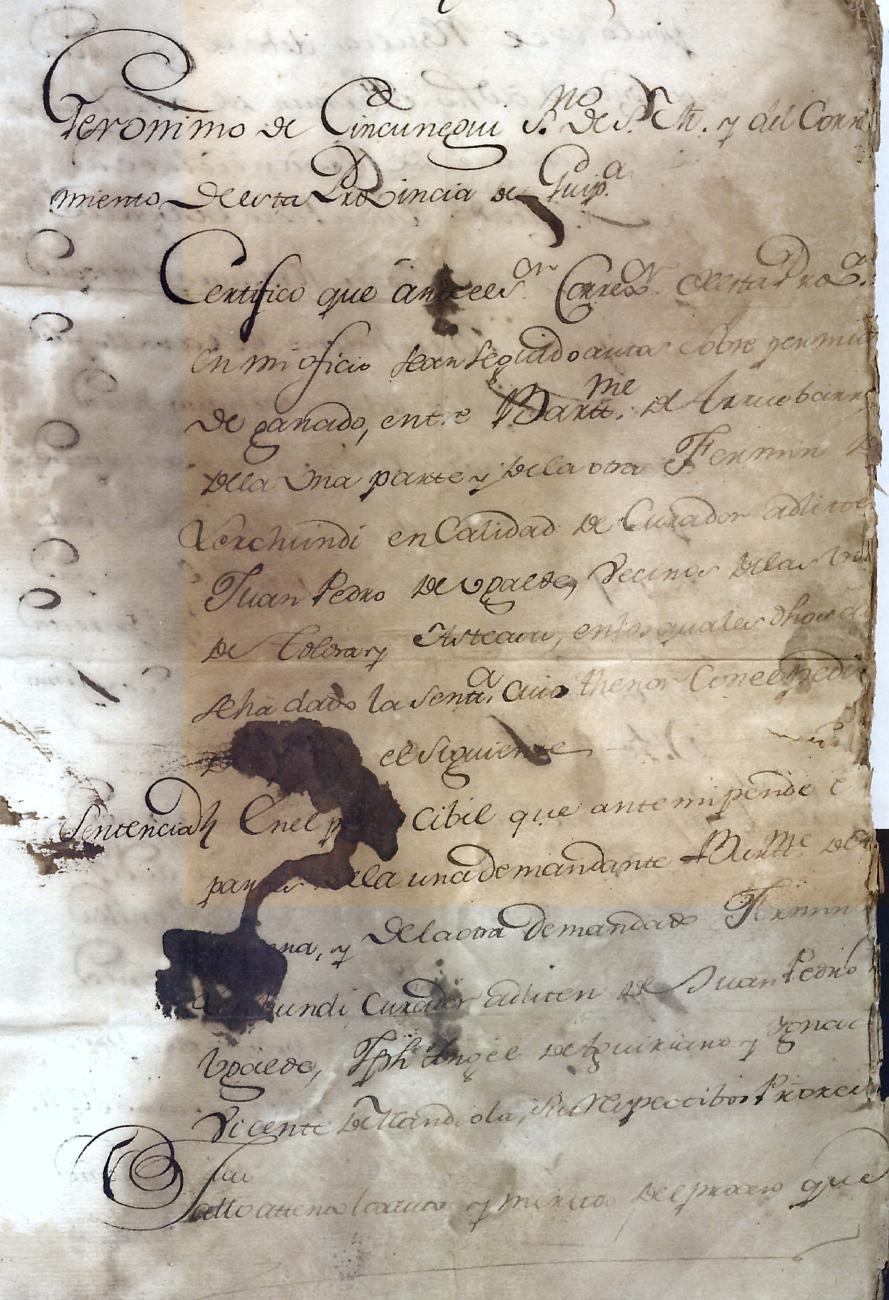 Geronimo de Cincunegui S.no de S. M. y del Corre
miento de esta Provincia de Guip.a
Certifico que ante el S.or Corre.or de esta Pro.a
en mi oficio se an seguido autos sobre permuta
de ganado, entre Bart.me de Arruebarr
de la una parte y de la otra Fermin de
Verchundi en Calidad de Curador adliten
Juan Pedro de Ugalde, Vecinos de las
de y en los quales dhos
se ha dado la sent.a cuio thenor
el siguiente
Sentencia En el cibil que ante mi pende
par de la una demandante Bart.me de
ena, y de la otra demandado Fermin
undi Curador adliten de Juan Pedro
Ugalde, Jph Angel de Aguiriano y Ygnac
Vicente de Mandiola, sus respectibos Prores
Fallo attento los autos y meritos del proceso que